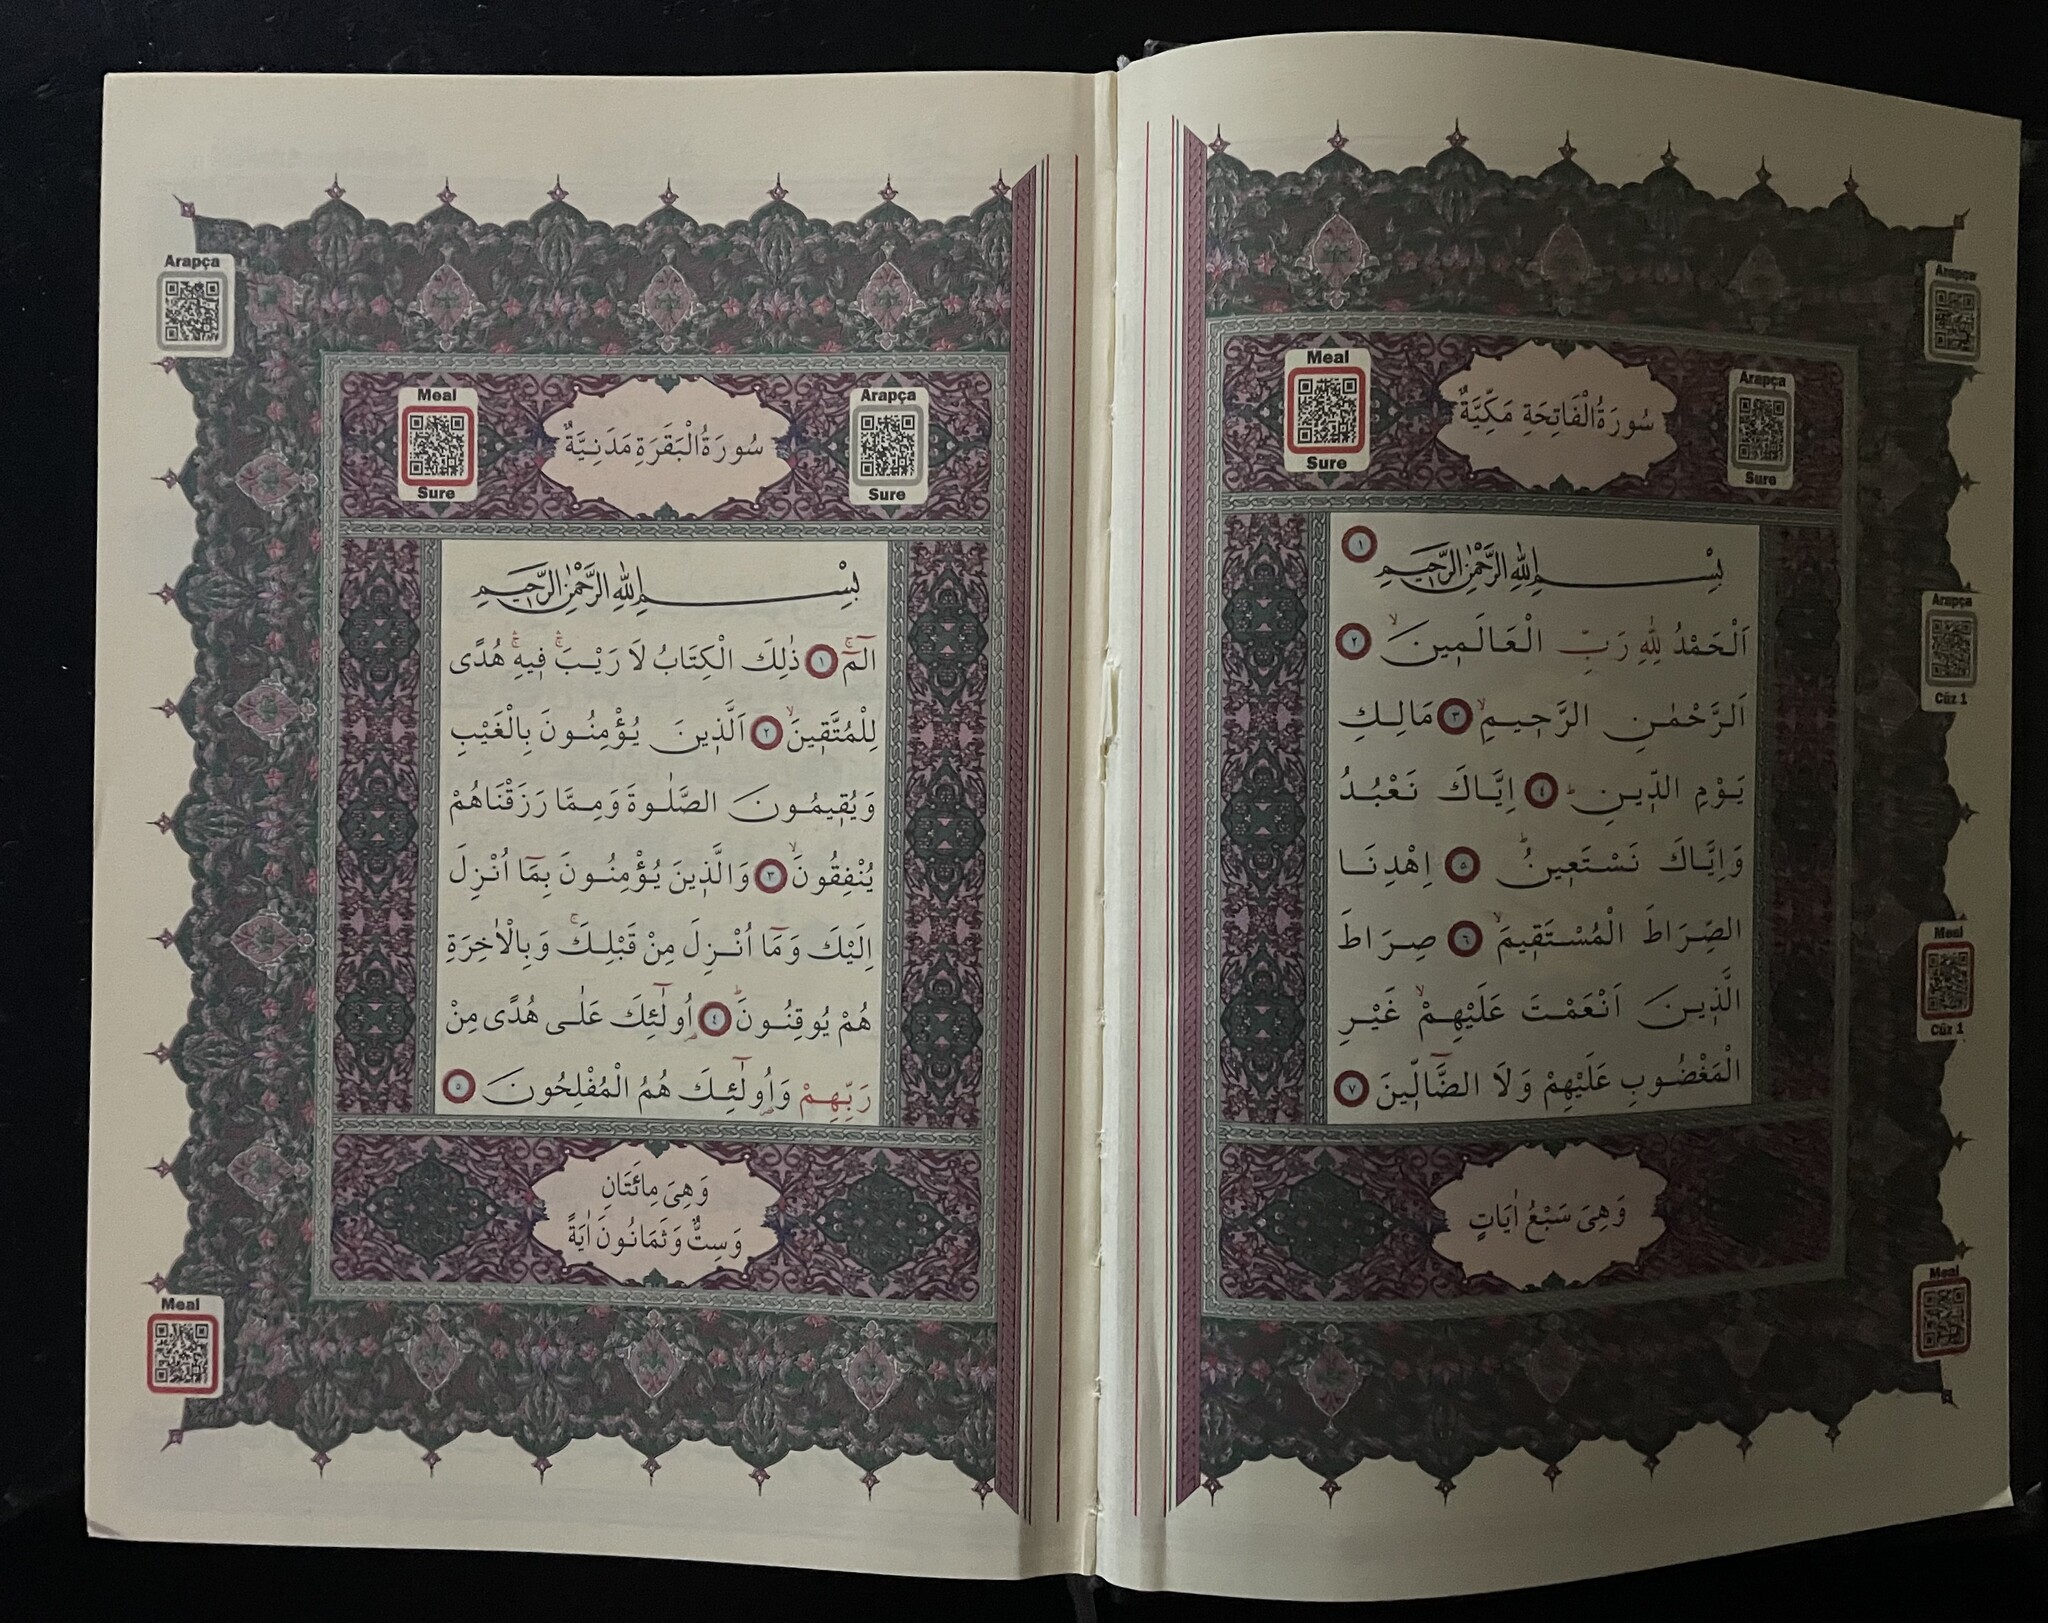 Arapça
Meal
سُورَةُ الْفَاتِحَةِ مَكِّيَّةٌ
Arapça
Sure
Sure
١ بِسْمِ اللهِ الرَّحْمٰنِ الرَّحِيمِ
اَلْحَمْدُ لِلّٰهِ رَبِّ الْعَالَمِينَۙ ٢
اَلرَّحْمٰنِ الرَّحِيمِۙ ٣ مَالِكِ
يَوْمِ الدِّينِۜ ٤ اِيَّاكَ نَعْبُدُ
وَاِيَّاكَ نَسْتَعِينُۜ ٥ اِهْدِنَا
الصِّرَاطَ الْمُسْتَقِيمَۙ ٦ صِرَاطَ
الَّذِينَ اَنْعَمْتَ عَلَيْهِمْۙ غَيْرِ
الْمَغْضُوبِ عَلَيْهِمْ وَلَا الضَّٓالِّينَ ٧
وَهِيَ سَبْعُ اٰيَاتٍ
Arapça
Cüz 1
Meal
Cüz 1
Meal
Arapça
Meal
سُورَةُ الْبَقَرَةِ مَدَنِيَّةٌ
Arapça
Sure
Sure
بِسْمِ اللهِ الرَّحْمٰنِ الرَّحِيمِ
الٓمٓۚ ١ ذٰلِكَ الْكِتَابُ لَا رَيْبَۚ فِيهِۚ هُدًى
لِلْمُتَّقِينَۙ ٢ اَلَّذِينَ يُؤْمِنُونَ بِالْغَيْبِ
وَيُقِيمُونَ الصَّلٰوةَ وَمِمَّا رَزَقْنَاهُمْ
يُنْفِقُونَۙ ٣ وَالَّذِينَ يُؤْمِنُونَ بِمَٓا اُنْزِلَ
اِلَيْكَ وَمَٓا اُنْزِلَ مِنْ قَبْلِكَۚ وَبِالْاٰخِرَةِ
هُمْ يُوقِنُونَۜ ٤ اُولٰٓئِكَ عَلٰى هُدًى مِنْ
رَبِّهِمْ وَاُولٰٓئِكَ هُمُ الْمُفْلِحُونَ ٥
وَهِيَ مِائَتَانِ
وَسِتٌّ وَثَمَانُونَ اٰيَةً
Meal